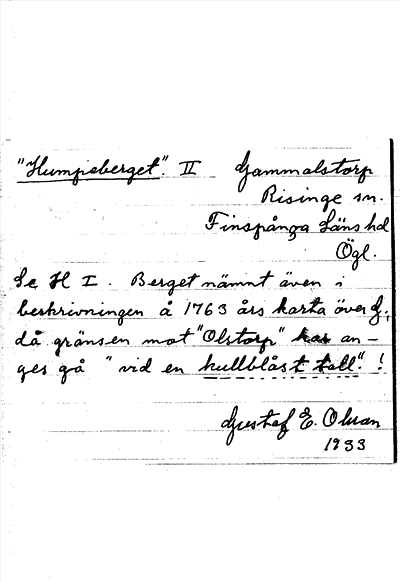 "Humpeberget". II Gammalstorp
Risinge sn.
Finspånga Läns hd
Ögl.
Se H I. Berget nämnt även i
beskrivningen å 1763 års karta över G.,
då gränsen mot "Olstorp" an-
ges gå "vid en kullblåst tall". !
Gustaf E. Olsson
1933